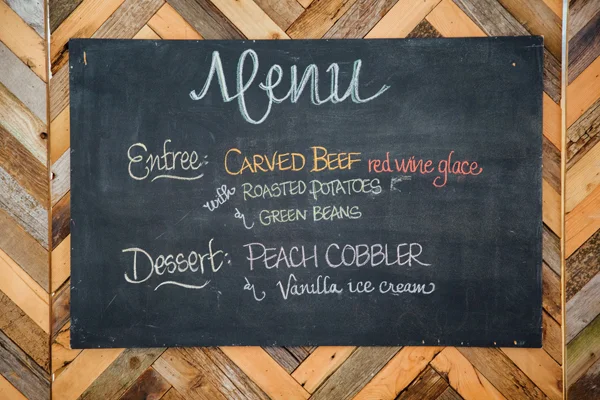 Menu
Entree: CARVED BEEF red wine glace
with ROASTED POTATOES
& GREEN BEANS
Dessert: PEACH COBBLER
& Vanilla ice cream